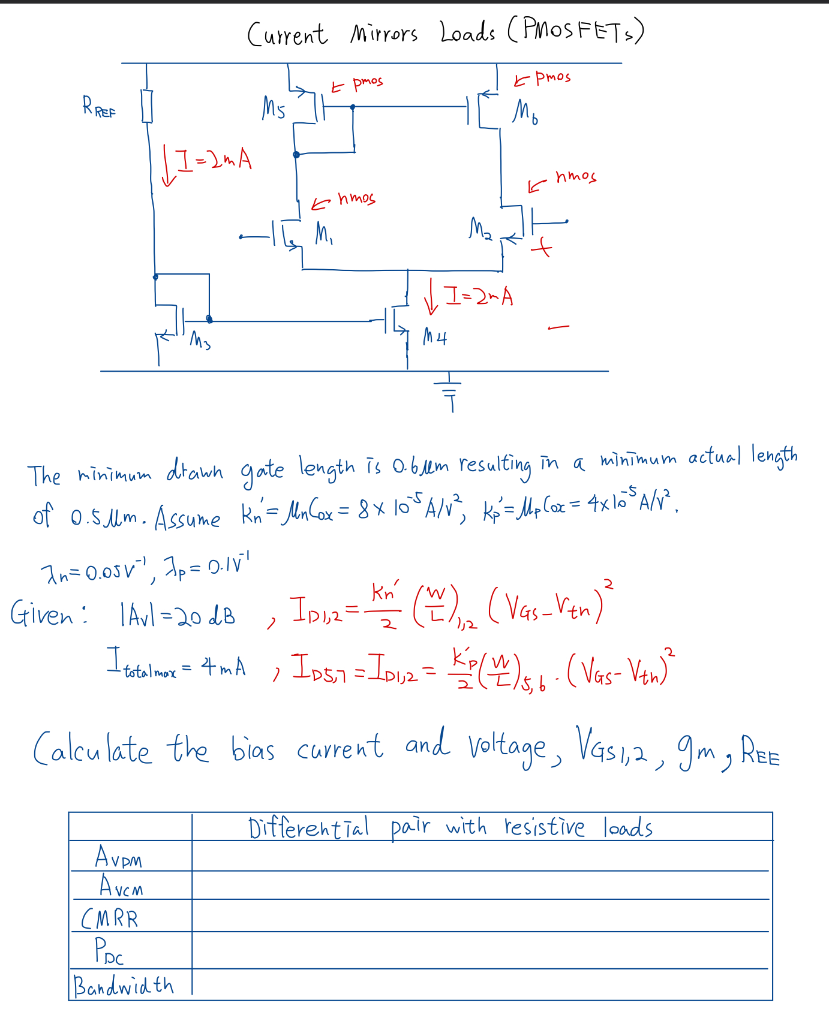 Current Mirrors Loads (PMOSFETs)
← pmos
← pmos
RREF
M5
M6
↓ I=2mA
← nmos
← nmos
M1
M2
+
↓ I=2mA
−
M3
M4
The minimum drawn gate length is 0.6μm resulting in a minimum actual length
of 0.5μm. Assume kn'=μnCox=8×10⁻⁵A/V², kp'=μpCox=4×10⁻⁵A/V².
λn=0.05V⁻¹, λp=0.1V⁻¹
Given: |Av|=20dB , ID1,2= kn'/2 (W/L)1,2 (VGS−Vtn)²
Itotalmax = 4mA , ID5,7=ID1,2= k'p/2 (W/L)5,6 · (VGS−Vtn)²
Calculate the bias current and voltage, VGS1,2, gm, REE
Differential pair with resistive loads
AVDM
AVCM
CMRR
PDC
Bandwidth